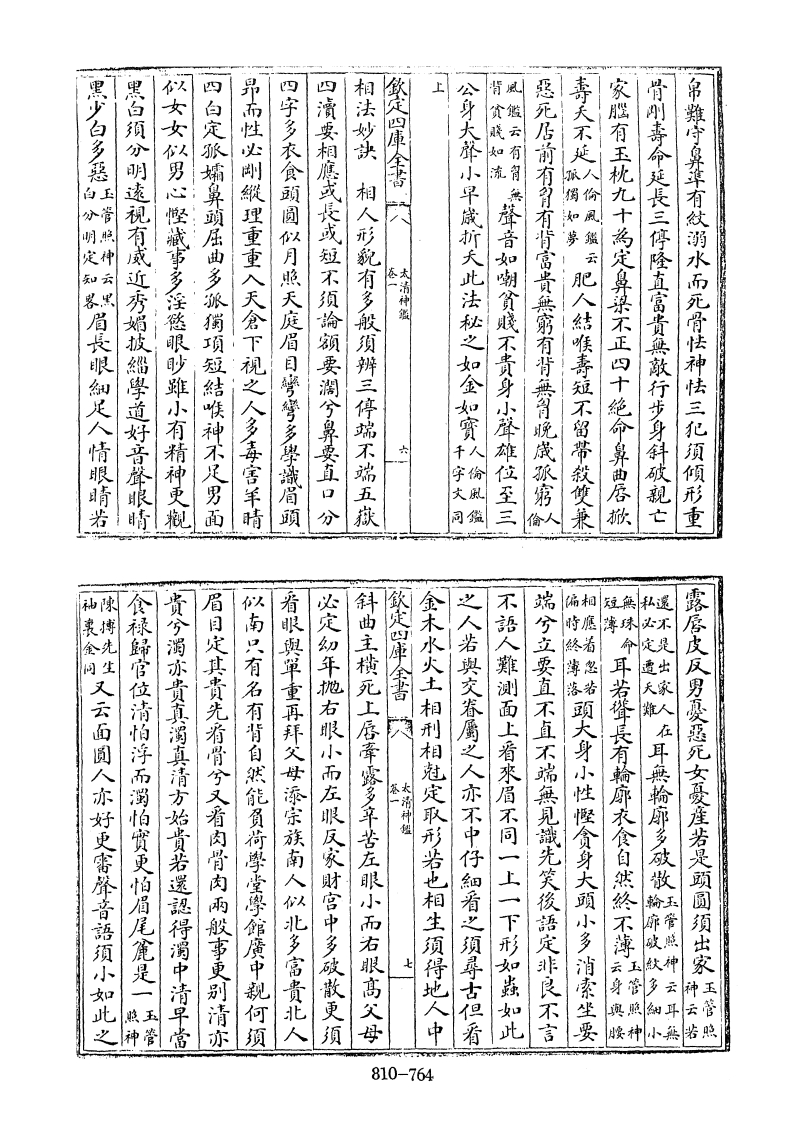 帛難守鼻準有紋溺水而死骨怯神怯三犯須傾形重
骨剛壽命延長三停隆直富貴無敵行步身斜破親亡
家腦有玉枕九十為定鼻梁不正四十絕命鼻曲唇掀
壽夭不延人倫風鑑云孤獨如夢肥人結喉壽短不留帶殺雙兼
惡死居前有胷有背富貴無窮有背無胷晚嵗孤窮人倫
風鑑云有胷無背貧賤如流聲音如嘲貧賤不貴身小聲雄位至三
公身大聲小早嵗折夭此法秘之如金如寶人倫風鑑千字文同
上
欽定四庫全書
太清神鑑
卷一
六
相法妙訣 相人形貌有多般須辨三停端不端五嶽
四瀆要相應或長或短不須論額要濶兮鼻要直口分
四字多衣食頭圓似月照天庭眉目彎彎多學識眉頭
昂而性必剛縱理重重入天倉下視之人多毒害羊睛
四白定孤孀鼻頭屈曲多孤獨項短結喉神不足男面
似女女似男心慳藏事多淫慾眼眇雖小有精神更觀
黑白須分明遠視有威近秀媚披緇學道好音聲眼睛
黒少白多惡玉管照神云黒白分明定知畧眉長眼細足人情眼睛若
露唇皮反男憂惡死女憂産若是頭圓須出家玉管照神云若
還不是出家人在私必定遭夭難耳無輪廓多破散玉管照神云耳無輪廓破紋多細小
無珠命短薄耳若聳長有輪廓衣食自然終不薄玉管照神云身與腰
相應着忽若偏時終薄落頭大身小性慳貪身大頭小多消索坐要
端兮立要直不直不端無見識先笑後語定非良不言
不語人難測面上看來眉不同一上一下形如蟲如此
之人若與交眷屬之人亦不中仔細看之須尋古但看
金木水火土相刑相尅定取形若也相生須得地人中
欽定四庫全書
太清神鑑
卷一
七
斜曲主橫死上唇牽露多辛苦左眼小而右眼高父母
必定幼年拋右眼小而左眼反家財宫中多破散更須
看眼與單重再拜父母添宗族南人似北多富貴北人
似南只有名有背自然能負荷學堂學館廣中親何須
眉目定其貴先看骨兮又看肉骨肉兩般事更别清亦
貴兮濁亦貴真濁真清方始貴若還認得濁中清早當
食禄歸官位清怕浮而濁怕實更怕眉尾麄是一玉管照神
陳摶先生袖裏金同又云面圓人亦好更審聲音語須小如此之
810-764